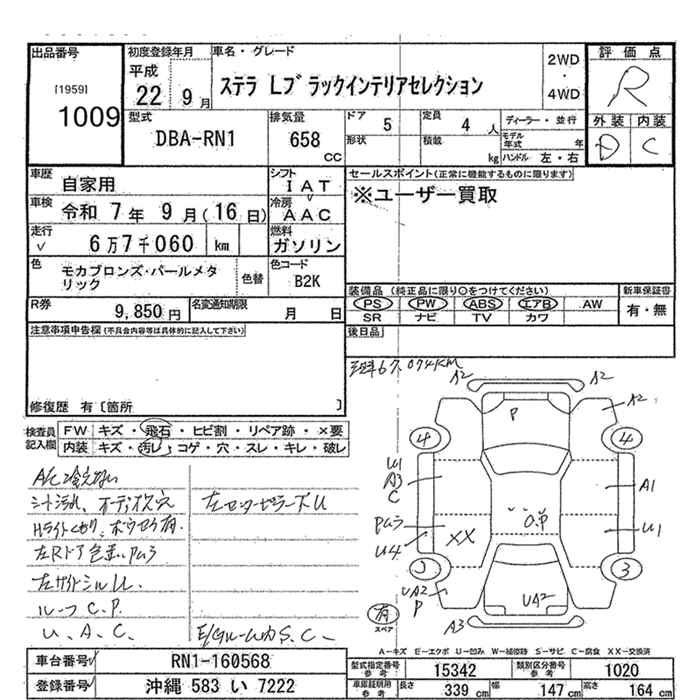 出品番号
[1959]
1009
初度登録年月
平成
22 9 月
車名・グレード
ステラ Lブラックインテリアセレクション
2WD
・
4WD
評価点
R
外装 内装
D C
型式
DBA-RN1
排気量
658
CC
ドア
5
形状
定員
4 人
積載
kg
ディーラー・並行
モデル
年式 年
ハンドル 左・右
車歴
自家用
シフト
IAT
車検
令和 7 年 9 月(16 日)
冷房
AAC
走行
6万7千060 km
燃料
ガソリン
色
モカブロンズ・パールメタ
リック
色替
色コード
B2K
R券
9,850 円
名変通知期限
月 日
セールスポイント(正常に機能するものに限ります)
※ユーザー買取
装備品 (純正品に限り○をつけてください)
PS PW ABS エアB AW
SR ナビ TV カワ
新車保証書
有・無
後日品
注意事項申告欄(不具合内容等は具体的に記入して下さい)
修復歴 有〔箇所 〕
検査員
記入欄
FW キズ・飛石・ヒビ割・リペア跡・×要
内装 キズ・汚レ・コゲ・穴・スレ・キレ・破レ
A/C冷えない
ルーフ C.P.
U、A、C.
67,074KM
A2 A2
A2
P
4 4
U1
A3
C
A1
O.P
XX
U4
U1
3
UA2
P
UA2
有
スペア
A3
A-キズ E-エクボ U-凹み W-補修跡 S-サビ C-腐食 XX-交換済
車台番号
RN1-160568
登録番号
沖縄 583 い 7222
型式指定番号
参考
15342
類別区分番号
参考
1020
車庫証明用
参考
長さ
339 cm
幅
147 cm
高さ
164 cm